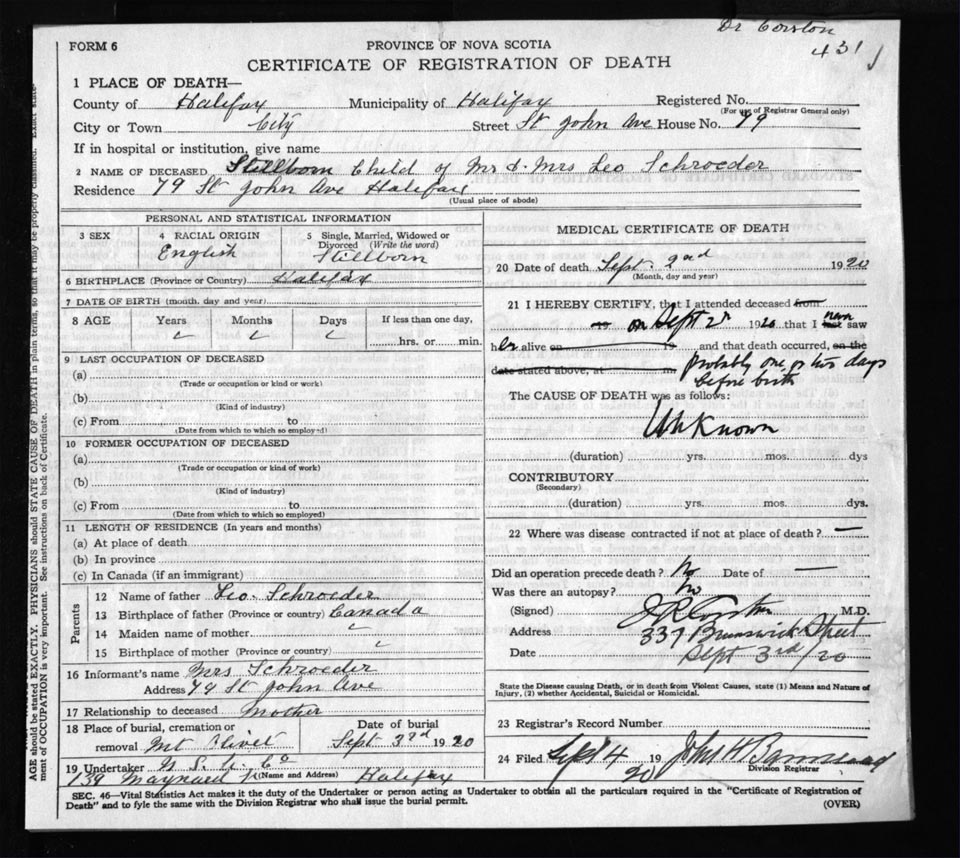 Dr Corston
431
FORM 6
PROVINCE OF NOVA SCOTIA
CERTIFICATE OF REGISTRATION OF DEATH
1 PLACE OF DEATH—
County of Halifax Municipality of Halifax Registered No.
(For use of Registrar General only)
City or Town City Street St John Ave House No. 79
If in hospital or institution, give name
2 NAME OF DECEASED Stillborn Child of Mr & Mrs Leo Schroeder
Residence 79 St John Ave Halifax
(Usual place of abode)
PERSONAL AND STATISTICAL INFORMATION
3 SEX 4 RACIAL ORIGIN 5 Single, Married, Widowed or Divorced (Write the word)
English Stillborn
6 BIRTHPLACE (Province or Country) Halifax
7 DATE OF BIRTH (month, day and year)
8 AGE Years Months Days If less than one day,
hrs. or min.
9 LAST OCCUPATION OF DECEASED
(a)
(Trade or occupation or kind or work)
(b)
(Kind of industry)
(c) From to
(Date from which to which so employed)
10 FORMER OCCUPATION OF DECEASED
(a)
(Trade or occupation or kind of work)
(b)
(Kind of industry)
(c) From to
(Date from which to which so employed)
11 LENGTH OF RESIDENCE (In years and months)
(a) At place of death
(b) In province
(c) In Canada (if an immigrant)
Parents
12 Name of father Leo. Schroeder
13 Birthplace of father (Province or country) Canada
14 Maiden name of mother
15 Birthplace of mother (Province or country)
16 Informant's name Mrs Schroeder
Address 79 St John Ave
17 Relationship to deceased Mother
18 Place of burial, cremation or Date of burial
removal Mt Olivet Sept 3rd 1920
19 Undertaker N. S. U. Co
139 Maynard St (Name and Address) Halifax
MEDICAL CERTIFICATE OF DEATH
20 Date of death Sept. 2nd 1920
(Month, day and year)
21 I HEREBY CERTIFY, that I attended deceased from
19 on Sept 2nd 1920 that I last never saw
her alive on 19 and that death occurred, on the
date stated above, at m probably one or two days
before birth
The CAUSE OF DEATH was as follows:
Unknown
(duration) yrs. mos. dys
CONTRIBUTORY
(Secondary)
(duration) yrs. mos. dys.
22 Where was disease contracted if not at place of death? —
Did an operation precede death? No Date of —
Was there an autopsy? No
(Signed) J R Corston M.D.
Address 337 Brunswick Street
Date Sept 3rd/20
State the Disease causing Death, or in death from Violent Causes, state (1) Means and Nature of
Injury, (2) whether Accidental, Suicidal or Homicidal.
23 Registrar's Record Number
24 Filed Sept 4 19 20 John H
Division Registrar
SEC. 46—Vital Statistics Act makes it the duty of the Undertaker or person acting as Undertaker to obtain all the particulars required in the "Certificate of Registration of
Death" and to fyle the same with the Division Registrar who shall issue the burial permit. (OVER)
AGE should be stated EXACTLY. PHYSICIANS should STATE CAUSE OF DEATH in plain terms, so that it may be properly classified. Exact state-
ment of OCCUPATION is very important. See instructions on back of Certificate.